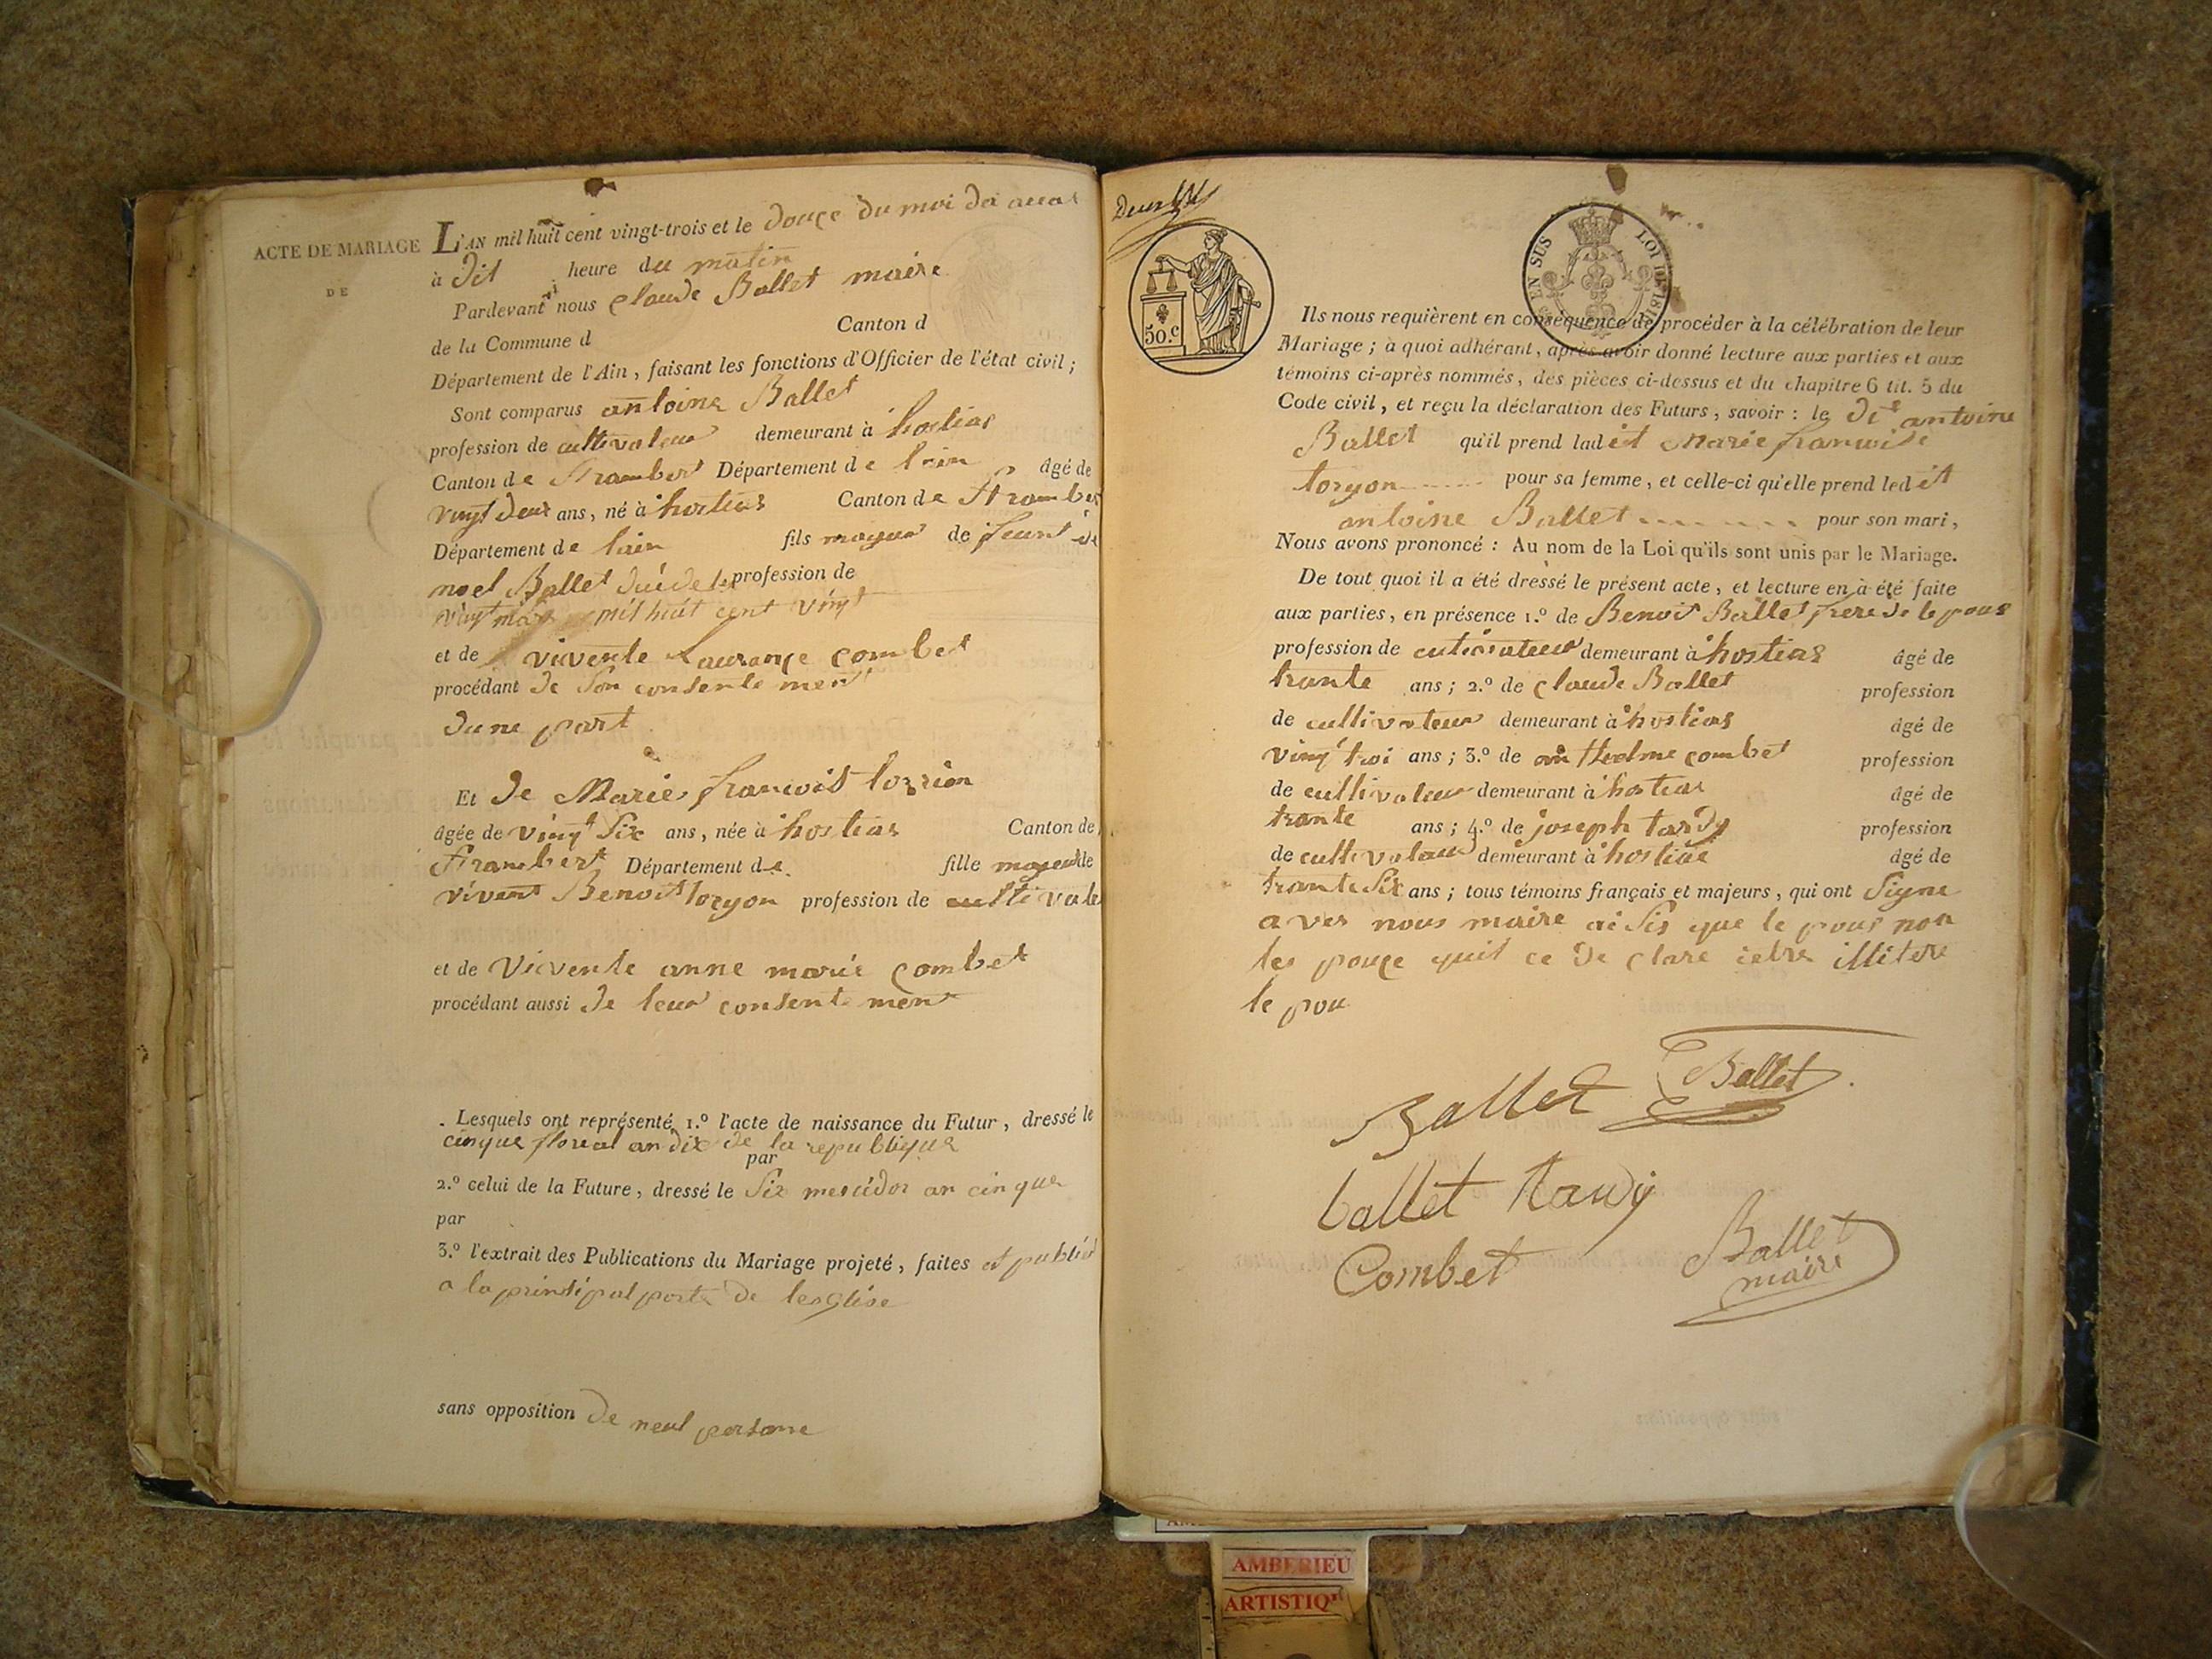 ACTE DE MARIAGE
DE
L'AN mil huit cent vingt-trois et le douçe du moi dei
à dit heure du matin
Pardevant nous claude Ballet maire
de la Commune d Canton d
Département de l'Ain, faisant les fonctions d'Officier de l'état civil;
Sont comparus antoine Ballet
profession de cultivateur demeurant à hostias
Canton de St rambert Département de lain âgé de
vingt deux ans, né à hostias Canton de St rambert
Département de lain fils mageur de feunt de
noel Ballet profession de
mil huit cent vingt
et de vivente Laurançe combet
procédant de son consente ment
dune part
Et de Marie francois torrion
âgée de vingt Six ans, née à hostias Canton de
St rambert Département de fille mageur de
vivent Benoit toryon profession de cultivate
et de vivente anne marie combet
procédant aussi de leur consente ment
Lesquels ont représenté 1.º l'acte de naissance du Futur, dressé le
cinque floreal an dix de la republique
par
2.º celui de la Future, dressé le Six mesidor an cinque
par
3.º l'extrait des Publications du Mariage projeté, faites et publié
a la prinsipal porte de leglise
sans opposition de neul persone
50.c
EN SUS LOI
Ils nous requièrent en conséquence de procéder à la célébration de leur
Mariage; à quoi adhérant, après avoir donné lecture aux parties et aux
témoins ci-après nommés, des pièces ci-dessus et du chapitre 6 tit. 5 du
Code civil, et reçu la déclaration des Futurs, savoir: le dit antoine
Ballet qu'il prend ladit Marie francoise
toryon pour sa femme, et celle-ci qu'elle prend ledit
antoine Ballet pour son mari,
Nous avons prononcé: Au nom de la Loi qu'ils sont unis par le Mariage.
De tout quoi il a été dressé le présent acte, et lecture en à été faite
aux parties, en présence 1.º de Benoit Ballet frere de le pous
profession de cultivateur demeurant à hostias âgé de
trante ans; 2.º de claude Ballet profession
de cultivateur demeurant à hostias âgé de
vingt troi ans; 3.º de anthelme combet profession
de cultivateur demeurant à hostias âgé de
trante ans; 4.º de joseph tardy profession
de cultivateur demeurant à hostias âgé de
trante Six ans; tous témoins français et majeurs, qui ont Signe
a vec nous maire ai Sis que le pous non
les pouçe quit ce de clare ietre illitere
le pou
Ballet Ballet
ballet tardy
Combet Ballet
maire
AMBERIEU
ARTISTIQ